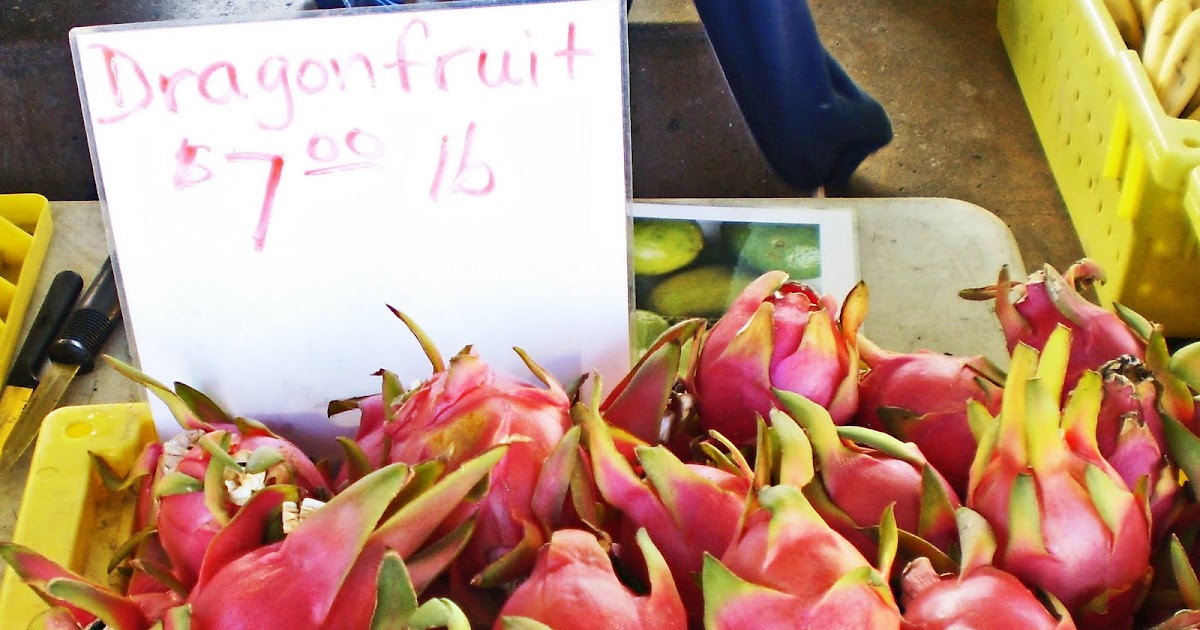 Dragonfruit
$7.00 lb